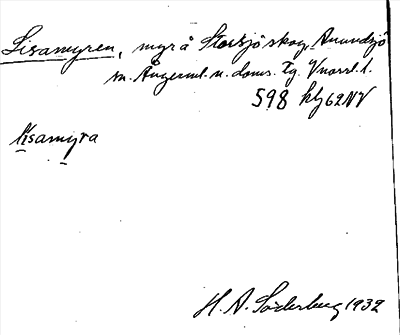 Lisamyren, myr å Storsjö skog, Anundsjö
sn. Ångerml. n. doms. Tg. Vnorrl. l.
598 kbg 62 NV
Lisamyra
H. A. Söderberg 1932